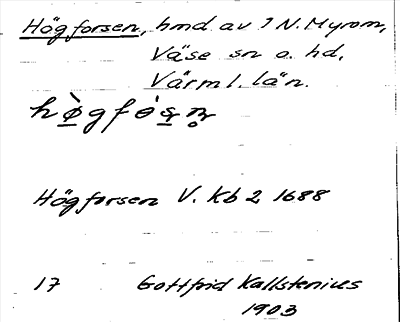 Högforsen, hmd av I N. Myrom,
Väse sn o. hd,
Värml. län.
Högforsen V. Kb 2 1688
17 Gottfrid Kallstenius
1903